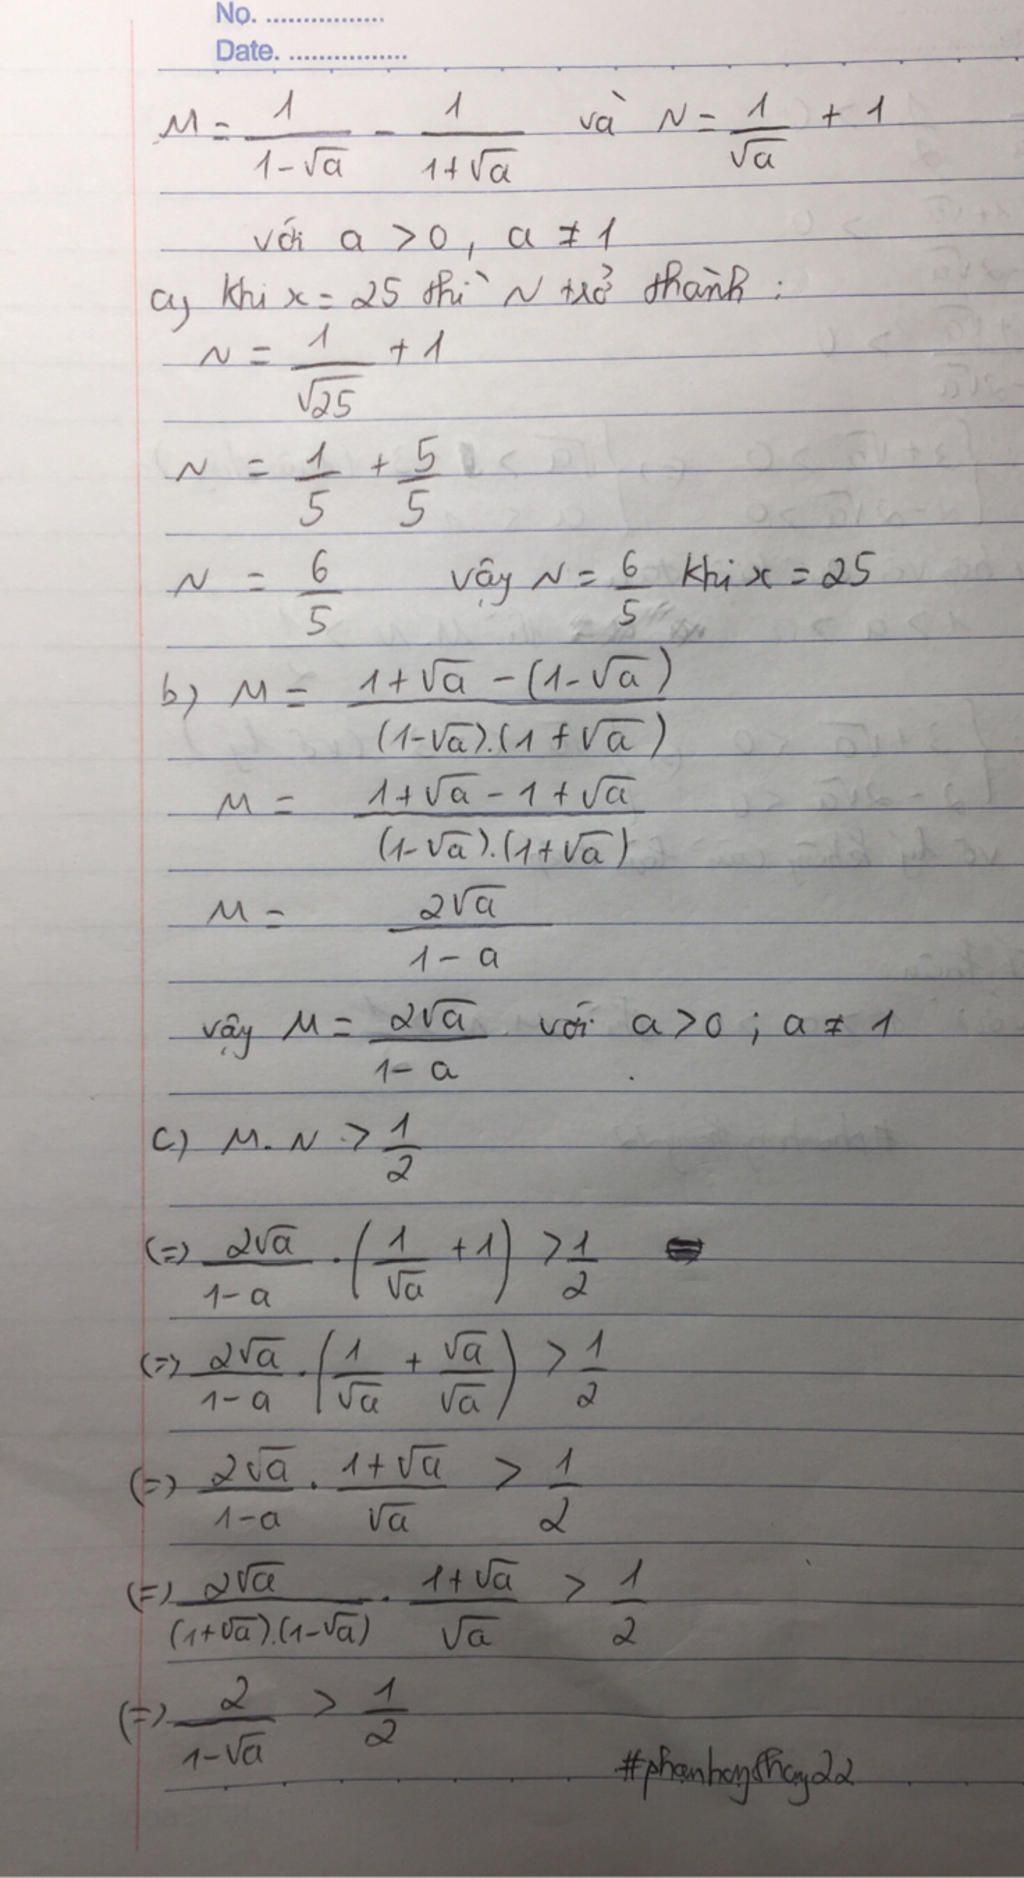 No. ................
Date. ................
M = 1/(1-√a) - 1/(1+√a) và N = 1/√a + 1
với a > 0, a ≠ 1
a) Khi x = 25 thì N trở thành :
N = 1/√25 + 1
N = 1/5 + 5/5
N = 6/5 vậy N = 6/5 Khi x = 25
b) M = (1+√a - (1-√a))/((1-√a).(1+√a))
M = (1+√a - 1+√a)/((1-√a).(1+√a))
M = 2√a/(1-a)
vậy M = 2√a/(1-a) với a > 0 ; a ≠ 1
c) M. N > 1/2
(=) 2√a/(1-a) . (1/√a + 1) > 1/2
(=) 2√a/(1-a) . (1/√a + √a/√a) > 1/2
(=) 2√a/(1-a) . (1+√a)/√a > 1/2
(=) 2√a/((1+√a).(1-√a)) . (1+√a)/√a > 1/2
(=) 2/(1-√a) > 1/2